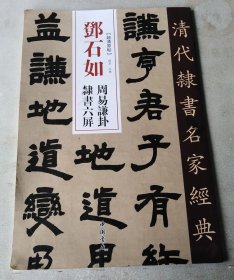 清代隸書名家經典
謙亨君子有終
謙地道
益謙地道變
鄧石如
周易謙卦
隸書六屏